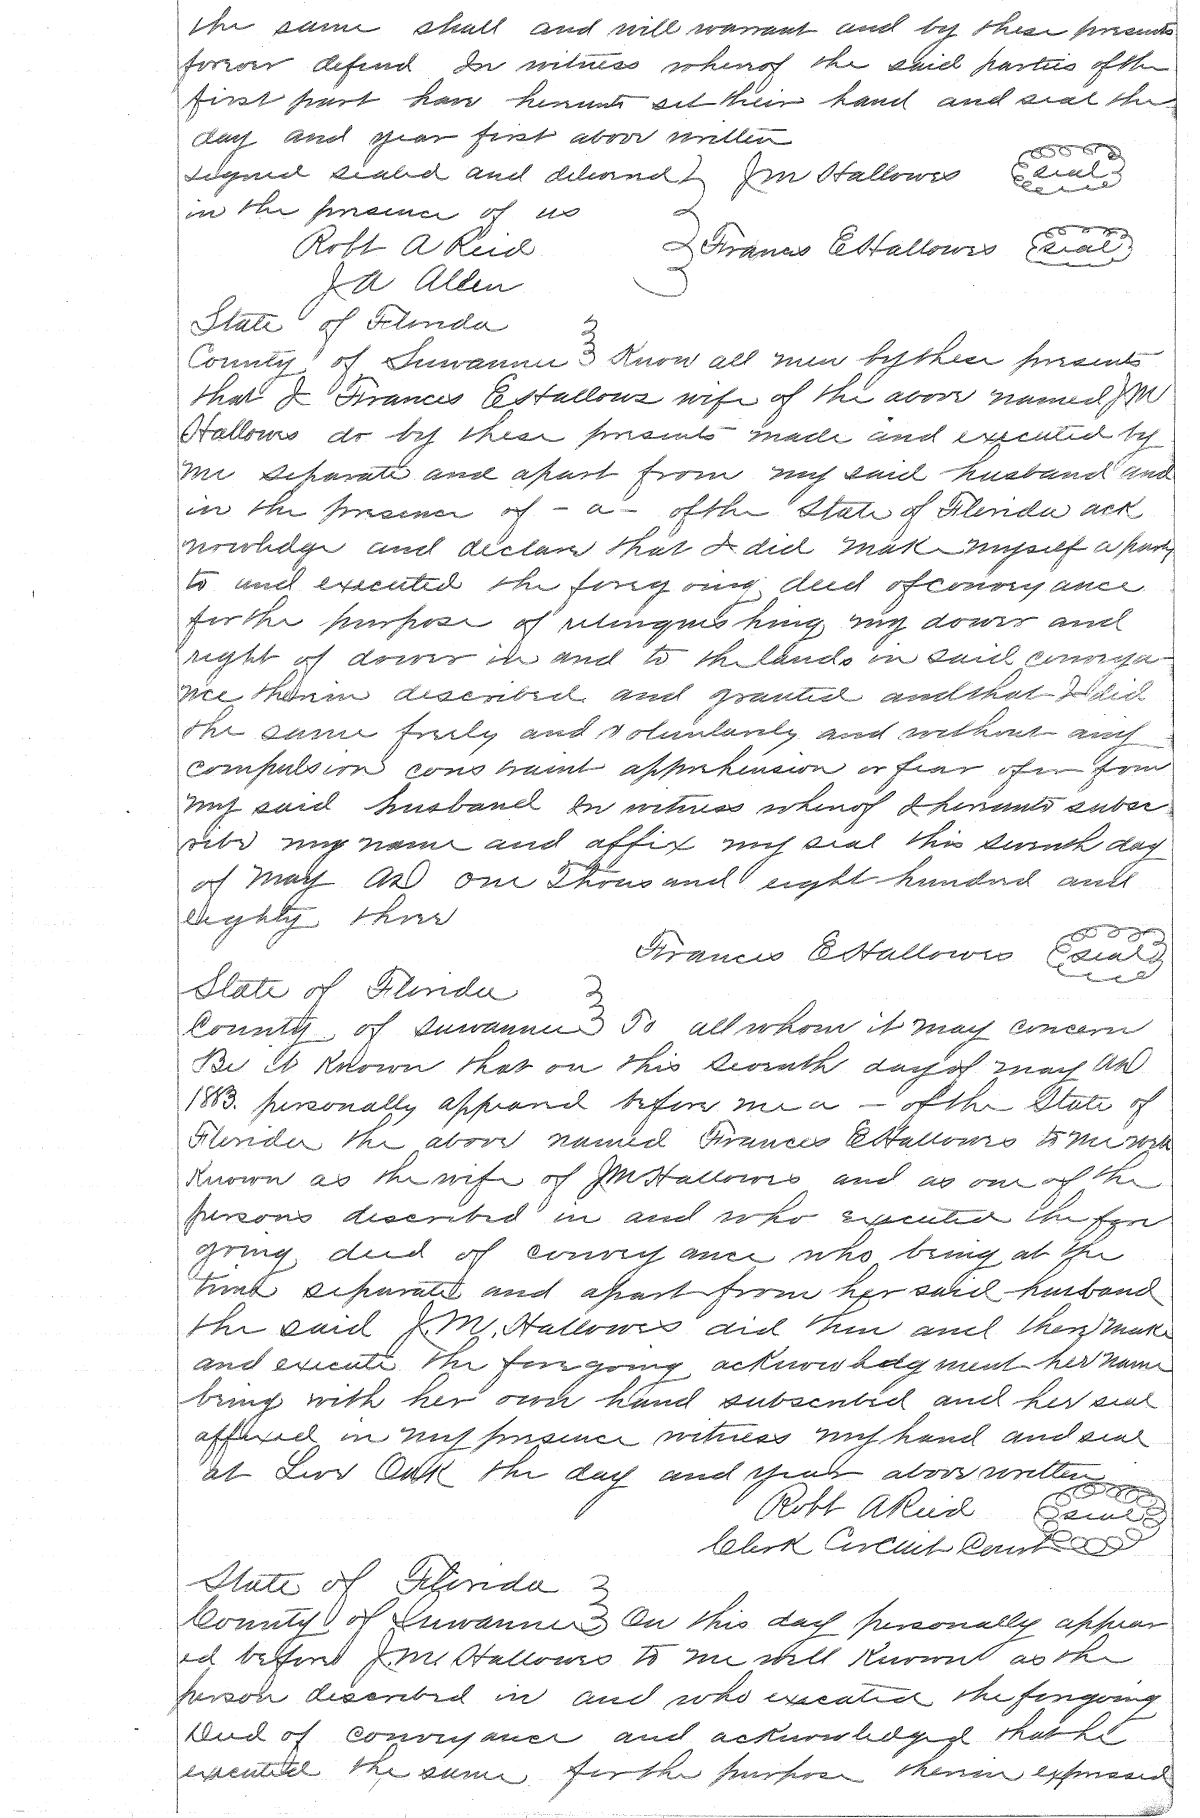 the same shall and will warrant and by these presents
forever defend In witness whereof the said parties of the
first part have hereunto set their hand and seal the
day and year first above written
signed sealed and delivered J M Hallowes seal
in the presence of us
Robt A Reid Frances E Hallowes seal
J A Allen
State of Florida
County of Suwannee Know all men by these presents
that I Frances E Hallows wife of the above named J M
Hallows do by these presents made and executed by
me separate and apart from my said husband and
in the presence of - a - of the State of Florida ack
nowledge and declare that I did make myself a party
to and executed the foregoing deed of conveyance
for the purpose of relinquishing my dower and
right of dower in and to the lands in said conveya
nce therein described and granted and that I did
the same freely and voluntarily and without any
compulsion constraint apprehension or fear of or from
my said husband In witness whereof I hereunto subsc
ribe my name and affix my seal this seventh day
of May AD One Thousand eight hundred and
eighty three
Frances E Hallowes seal
State of Florida
County of Suwannee To all whom it may concern
Be it Known that on this seventh day of may AD
1883. personally appeared before me a - of the State of
Florida the above named Frances E Hallowes to me well
Known as the wife of J M Hallowes and as one of the
persons described in and who executed the fore
going deed of conveyance who being at the
time separate and apart from her said husband
the said J. M. Hallowes did then and there make
and execute the foregoing acknowledgment her name
being with her own hand subscribed and her seal
affixed in my presence witness my hand and seal
at Live Oak the day and year above written
Robt A Reid seal
Clerk Circuit Court
State of Florida
County of Suwannee On this day personally appear
ed before J. M. Hallowes to me well Known as the
person described in and who executed the foregoing
Deed of conveyance and acknowledged that he
executed the same for the purpose therein expressed